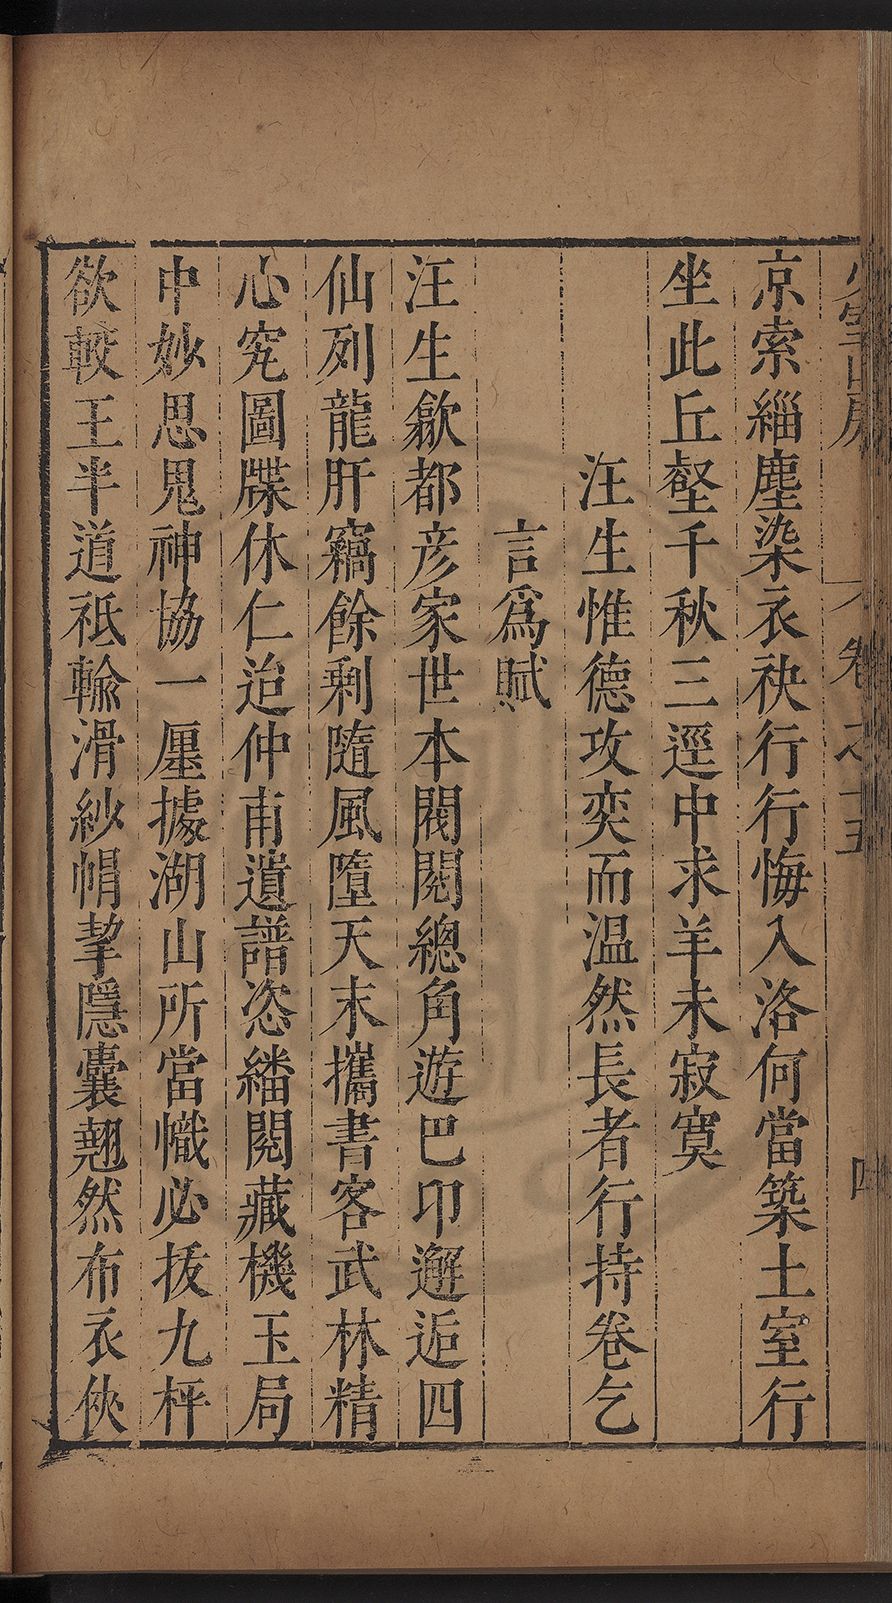 京索緇塵染衣袂行行悔入洛何當築土室行
坐此丘壑千秋三逕中求羊未寂寞
汪生惟德攻奕而温然長者行持卷乞
言爲賦
汪生歙都彦家世本閥閱總角遊巴卭邂逅四
仙列龍肝竊餘剩隨風墮天末攜書客武林精
心究圖牒休仁迨仲甫遺譜恣繙閱藏機玉局
中妙思鬼神協一廛據湖山所當幟必拔九枰
欲較王半道祗輸滑紗帩挈隱囊翹然布衣俠